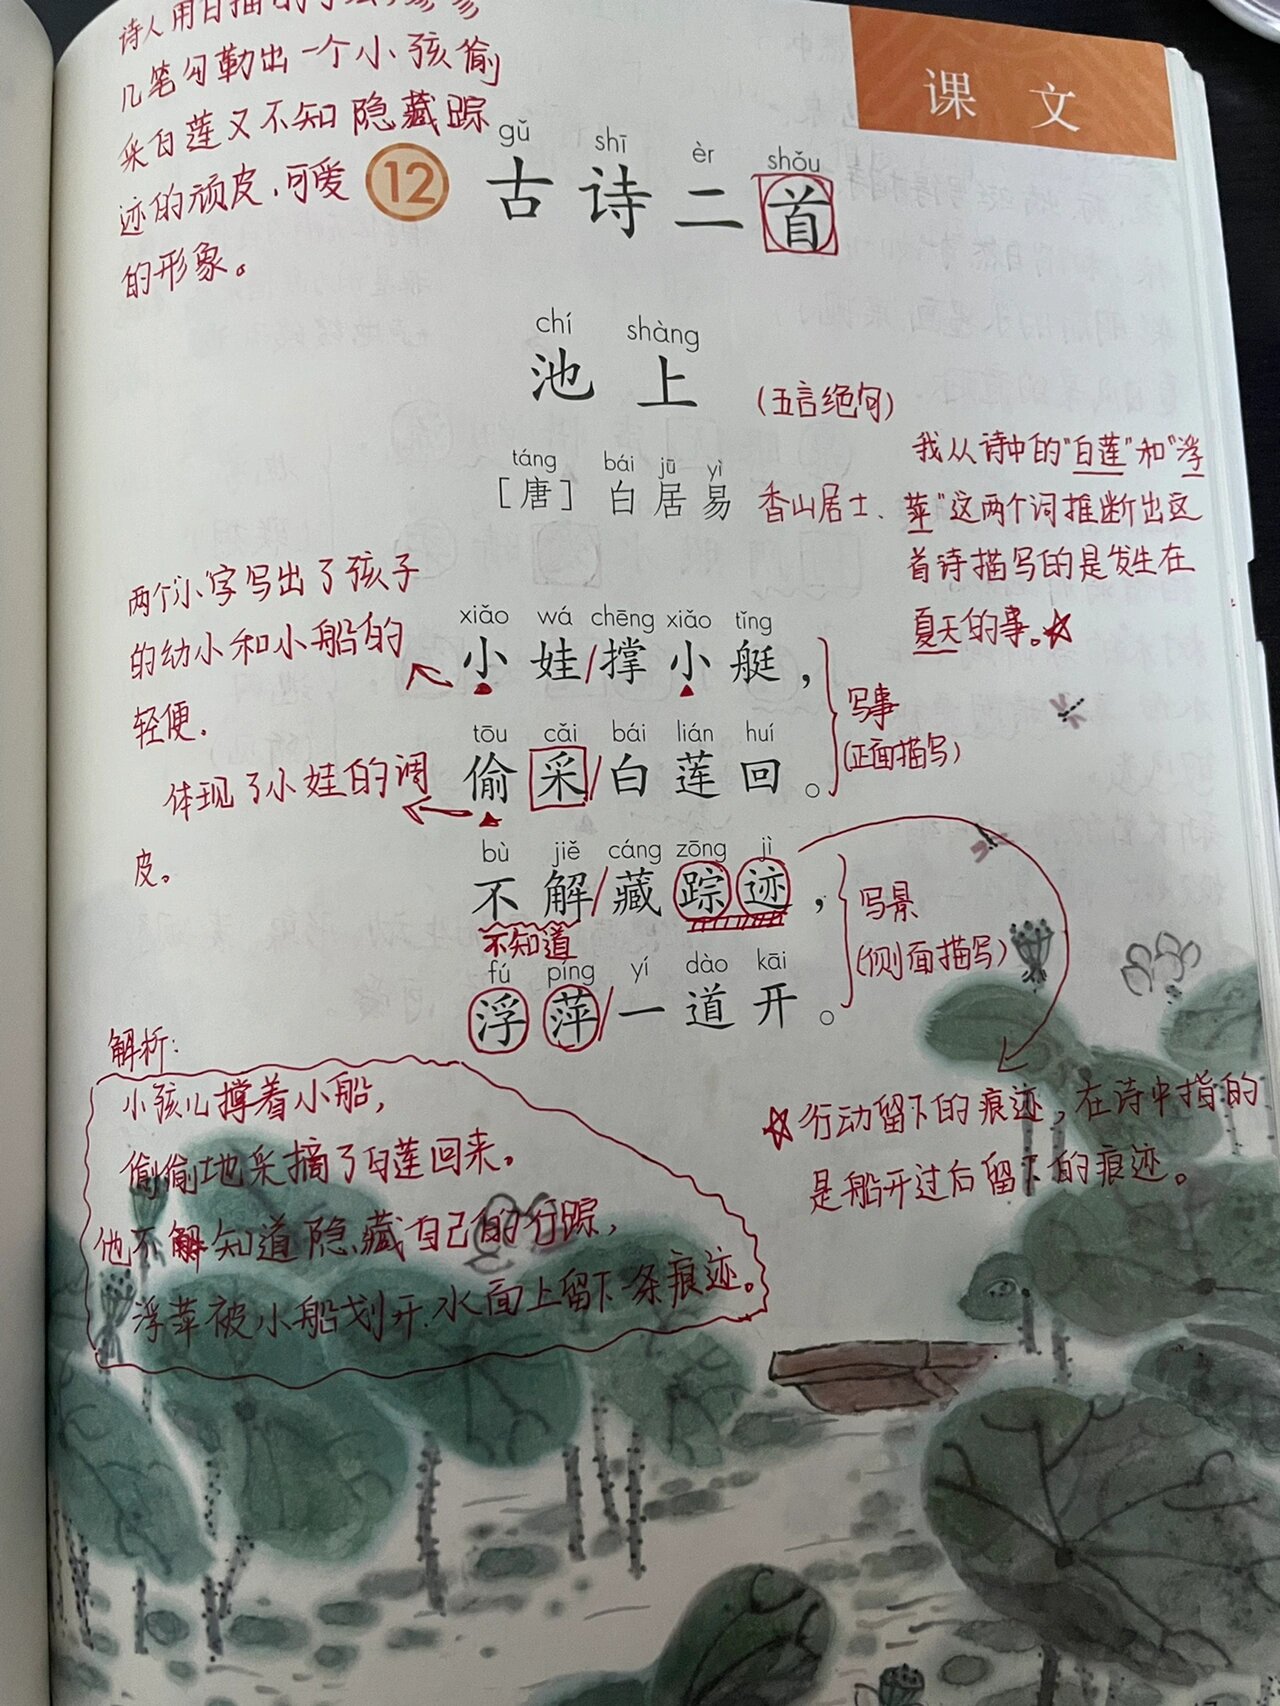 诗人用白描的手法,寥寥
几笔勾勒出一个小孩偷
采白莲又不知隐藏踪
迹的顽皮、可爱
的形象。
课文
gǔ shī èr shǒu
12 古诗二首
chí shàng
池上
(五言绝句)
táng bái jū yì
[唐] 白居易
香山居士、
我从诗中的"白莲"和"浮
萍"这两个词推断出这
首诗描写的是发生在
夏天的事。☆
两个小字写出了孩子
的幼小和小船的
轻便.
xiǎo wá chēng xiǎo tǐng
小娃/撑小艇,
体现了小娃的调
皮。
tōu cǎi bái lián huí
偷采/白莲回。
写事
(正面描写)
bù jiě cáng zōng jì
不解/藏踪迹,
不知道
fú píng yí dào kāi
浮萍/一道开。
写景
(侧面描写)
☆行动留下的痕迹,在诗中指的
是船开过后留下的痕迹。
解析:
小孩儿撑着小船,
偷偷地采摘了白莲回来。
他不知道隐藏自己的行踪,
浮萍被小船划开.水面上留下一条痕迹。